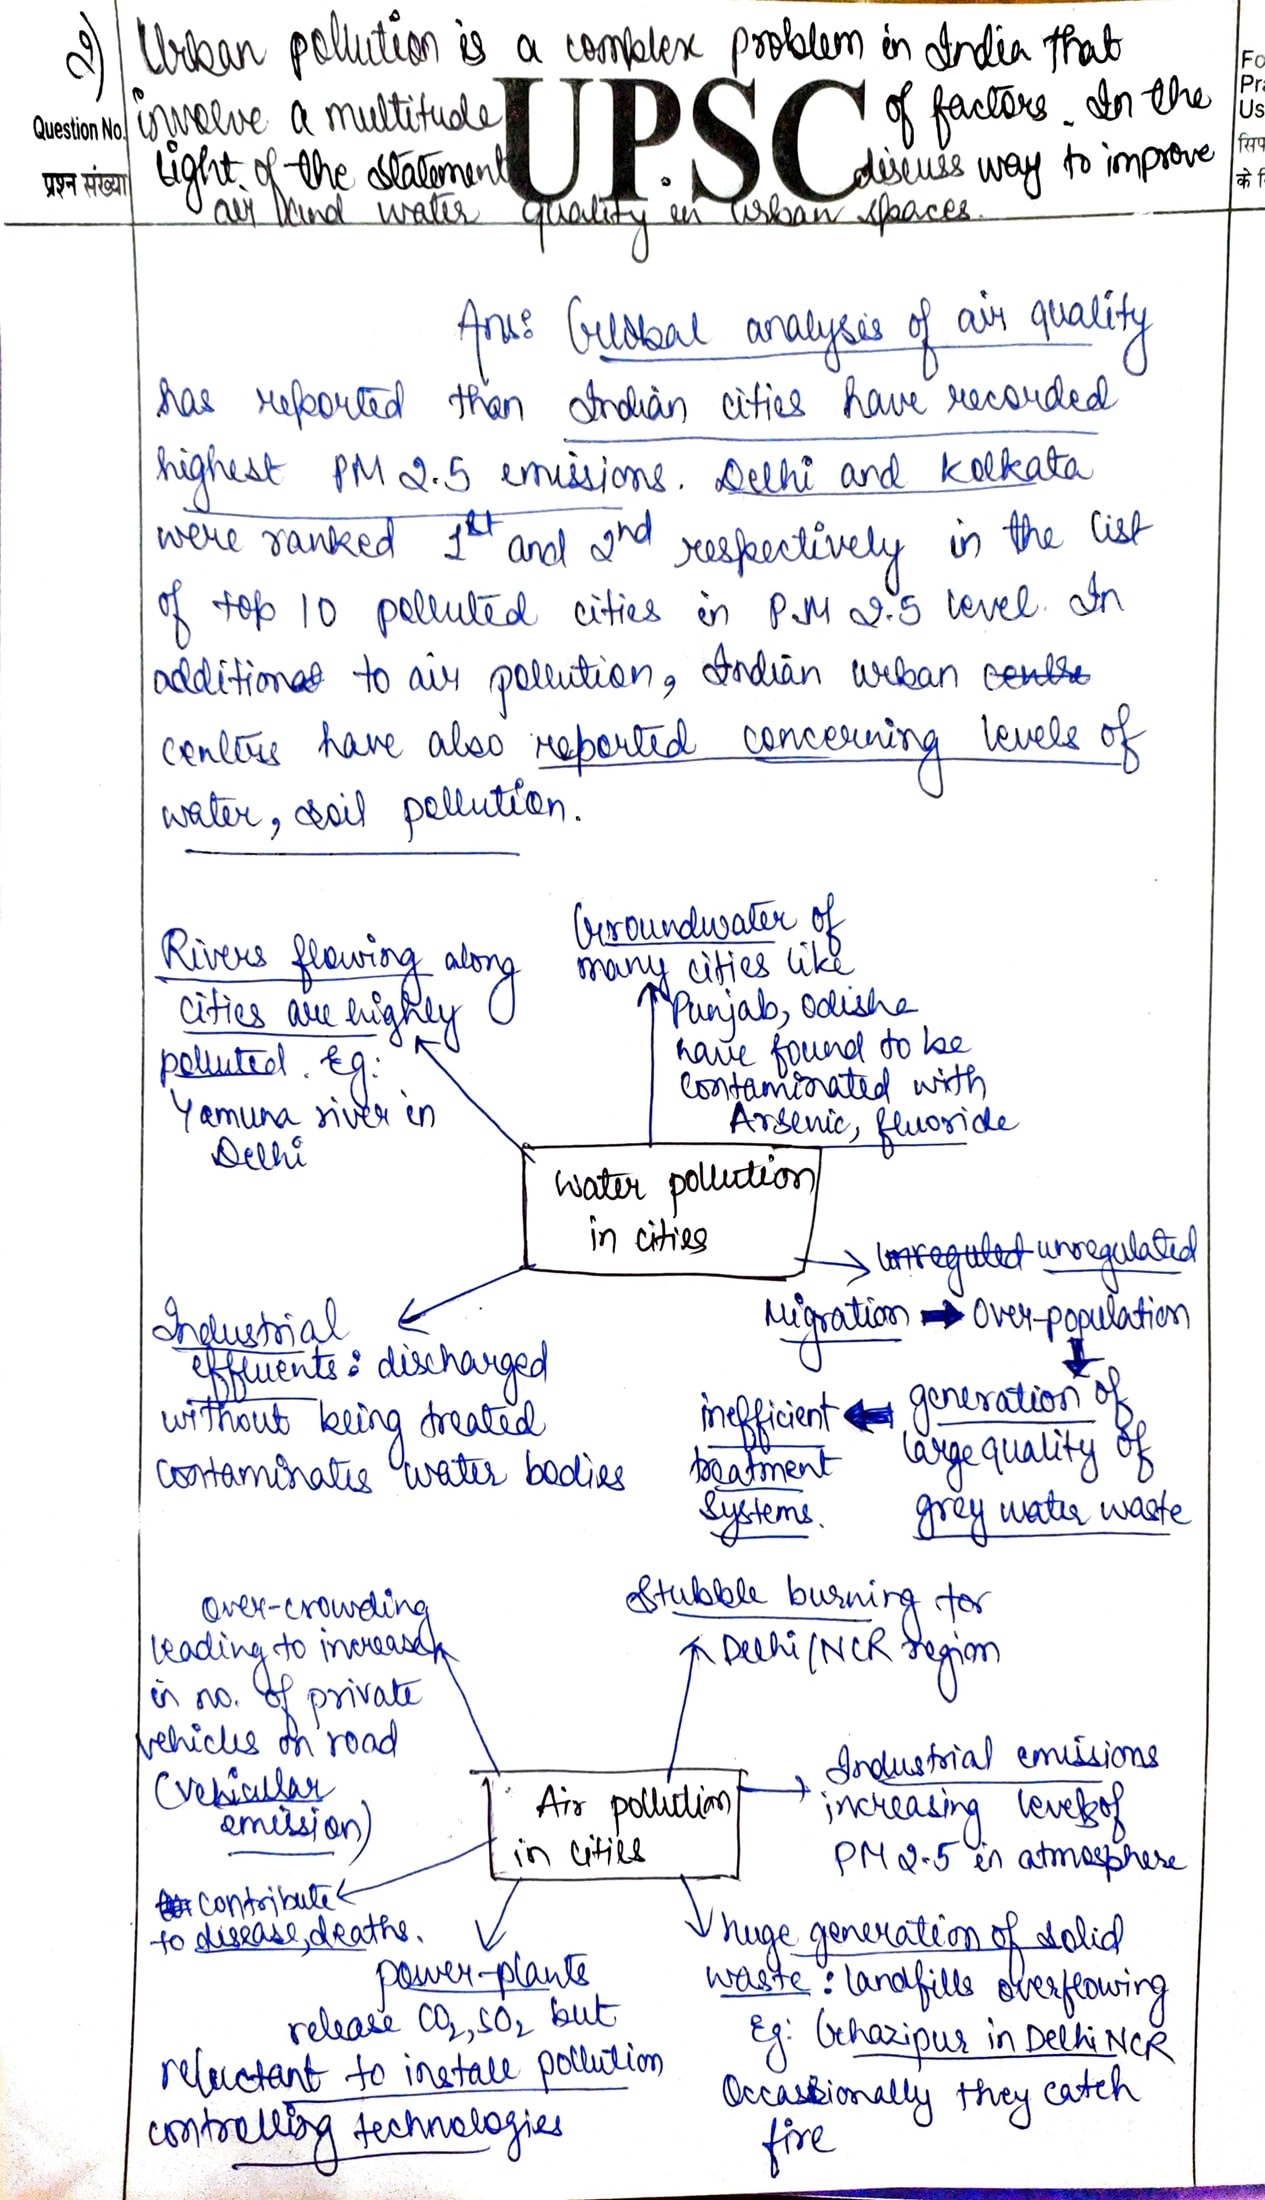 2) Urban pollution is a complex problem in India that
Question No.
प्रश्न संख्या
involve a multitude UPSC of factors. In the
light of the statement discuss way to improve
air and water quality in urban spaces.
Fo
Pra
Us
सिप
के f
Ans: Global analysis of air quality
has reported than Indian cities have recorded
highest PM 2.5 emissions. Delhi and Kolkata
were ranked 1st and 2nd respectively in the list
of top 10 polluted cities in P.M 2.5 level. In
addition to air pollution, Indian urban centre
centers have also reported concerning levels of
water, soil pollution.
Rivers flowing along
cities are highly
polluted. Eg:
Yamuna river in
Delhi
Groundwater of
many cities like
Punjab, Odisha
have found to be
contaminated with
Arsenic, fluoride
Water pollution
in cities
Industrial
effluents: discharged
without being treated
contaminates water bodies
unreguled unregulated
Migration ➡ Over-population
generation of
large quality of
grey water waste
inefficient
treatment
systems.
Over-crowding
leading to increase
in no. of private
vehicles on road
(vehicular
emission)
Stubble burning for
Delhi/NCR region
Air pollution
in cities
Industrial emissions
increasing levels of
PM 2.5 in atmosphere
contribute
to disease, deaths.
power-plants
release CO2, SO2 but
reluctant to install pollution
controlling technologies
huge generation of solid
waste: landfills overflowing
Eg: Ghazipur in Delhi NCR
Occassionally they catch
fire